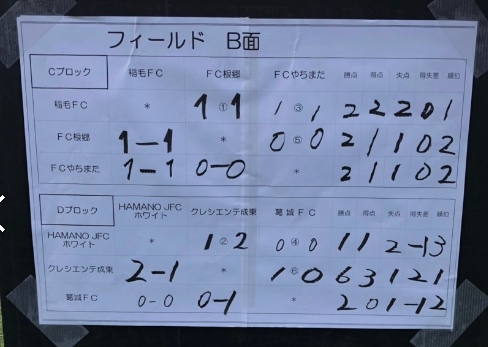 フィールド B面
Cブロック 稲毛FC FC根郷 FCやちまた 勝点 得点 失点 得失差 順位
稲毛FC * 1 ① 1 1 ③ 1 2 2 2 0 1
FC根郷 1-1 * 0 ⑤ 0 2 1 1 0 2
FCやちまた 1-1 0-0 * 2 1 1 0 2
Dブロック HAMANO JFC ホワイト クレシエンテ成東 葛城FC 勝点 得点 失点 得失差 順位
HAMANO JFC ホワイト * 1 ② 2 0 ④ 0 1 1 2 -1 3
クレシエンテ成東 2-1 * 1 ⑥ 0 6 3 1 2 1
葛城FC 0-0 0-1 * 2 0 1 -1 2